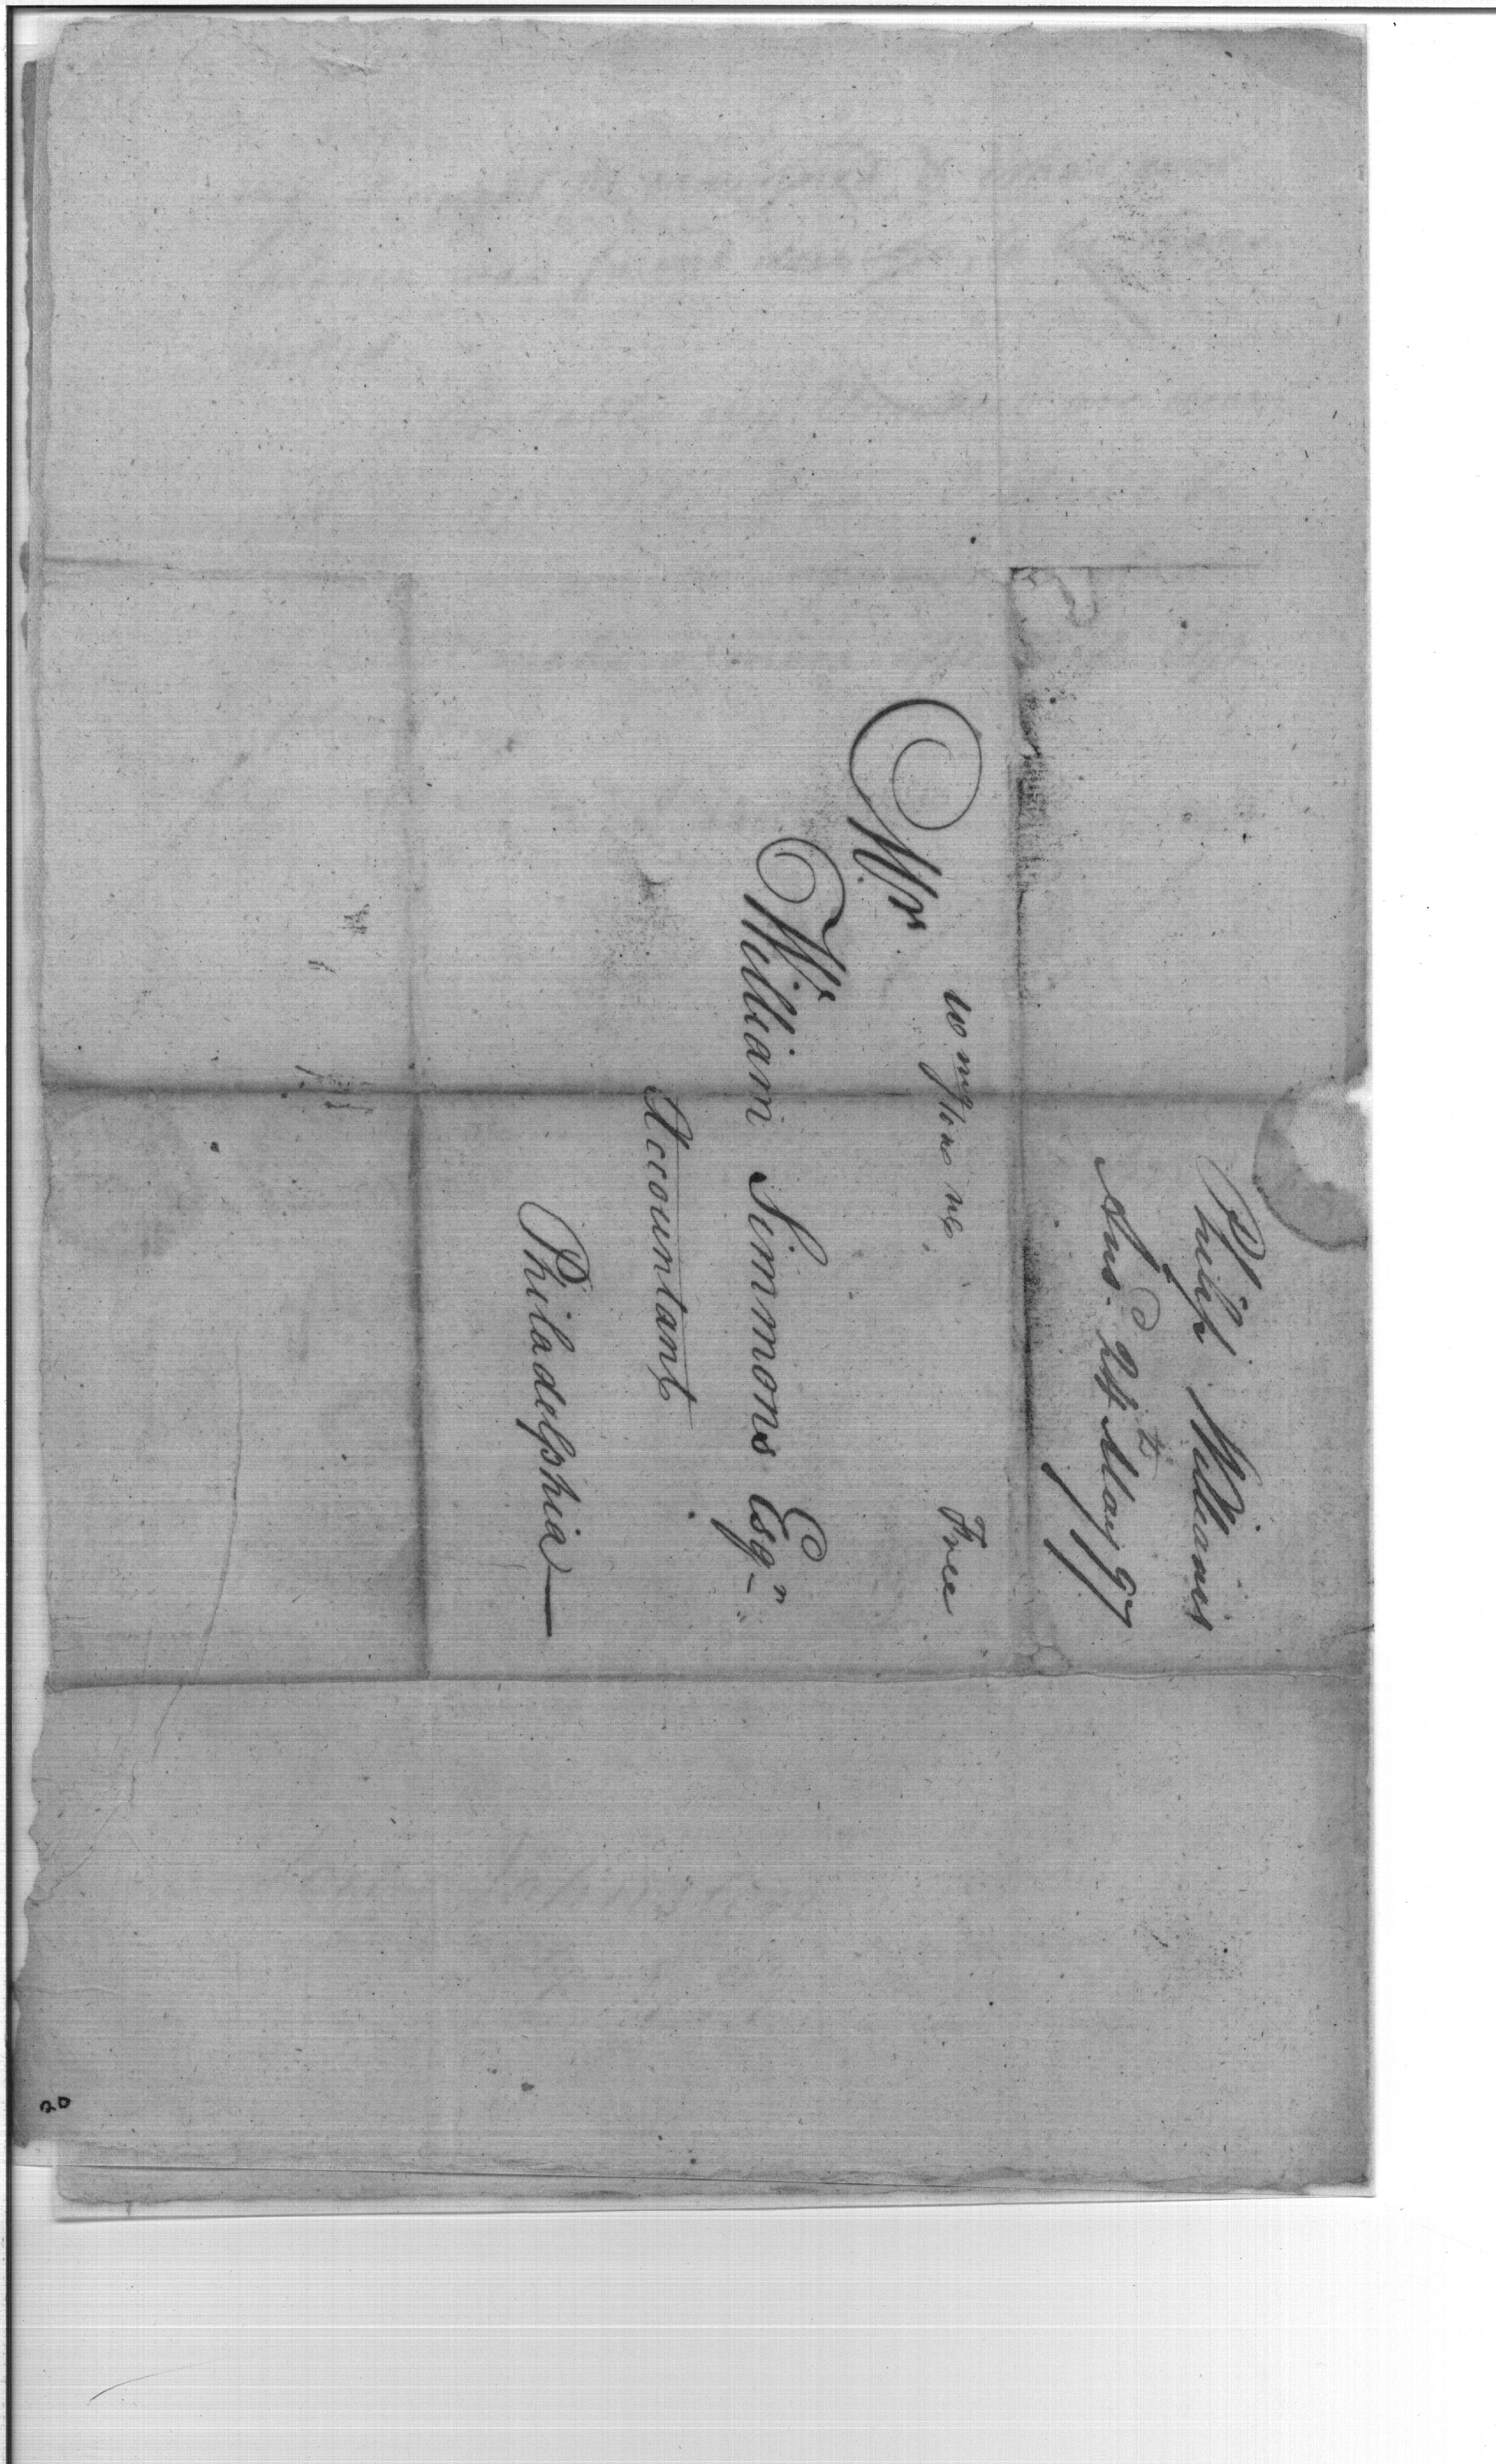 Philip Williams
Ans.d 24th May 97
Free
Mr
William Simmons Esqr
Accountant
Philadelphia
20